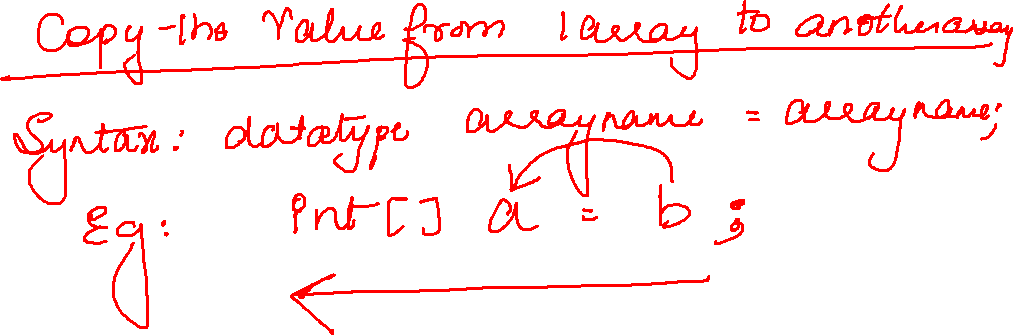 Copy the Value from 1 array to another array
Syntax: datatype arrayname = arrayname;
Eg: int[] a = b;